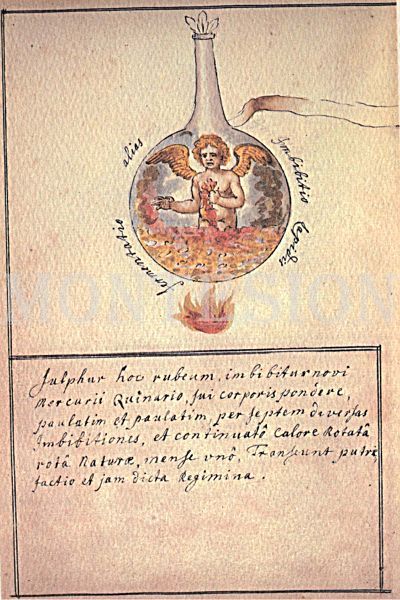 Imbibitio Lapidis
alias
fermentatio
Sulphur hoc rubeum, imbibitur novi
Mercurii Quinario, sui corporis pondere,
paulatim et paulatim, per septem diversas
Imbibitiones, et continuatô Calore Rotatâ
rotâ Naturæ, mense unô, Transeunt putre
factio et jam dicta Regimina.